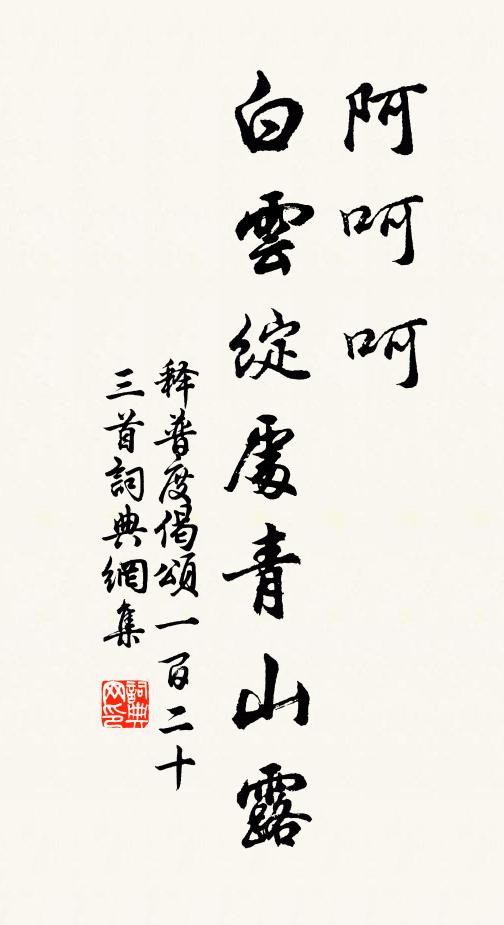 阿呵呵
白雲綻處青山露
释普度偈頌一百二十
三首詞典網集
詞典网印